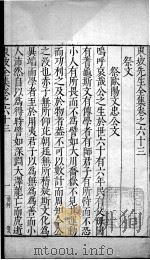 東坡先生全集卷之六十三
祭文
祭歐陽文忠公文
嗚呼哀哉公之生於世六十有六年民有父母國
有蓍龜斯文有傳學者有師君子有所恃而不恐
小人有所畏而不為譬如大川喬嶽不見其運動
而功利之及於物者蓋不可以數計而周知今公
之沒也赤子無所仰芘朝廷無所稽疑斯文化為
異端而學者至於用夷君子以為無為為善而小
人沛然自以為得時譬如深淵大澤龍亡而虎逝